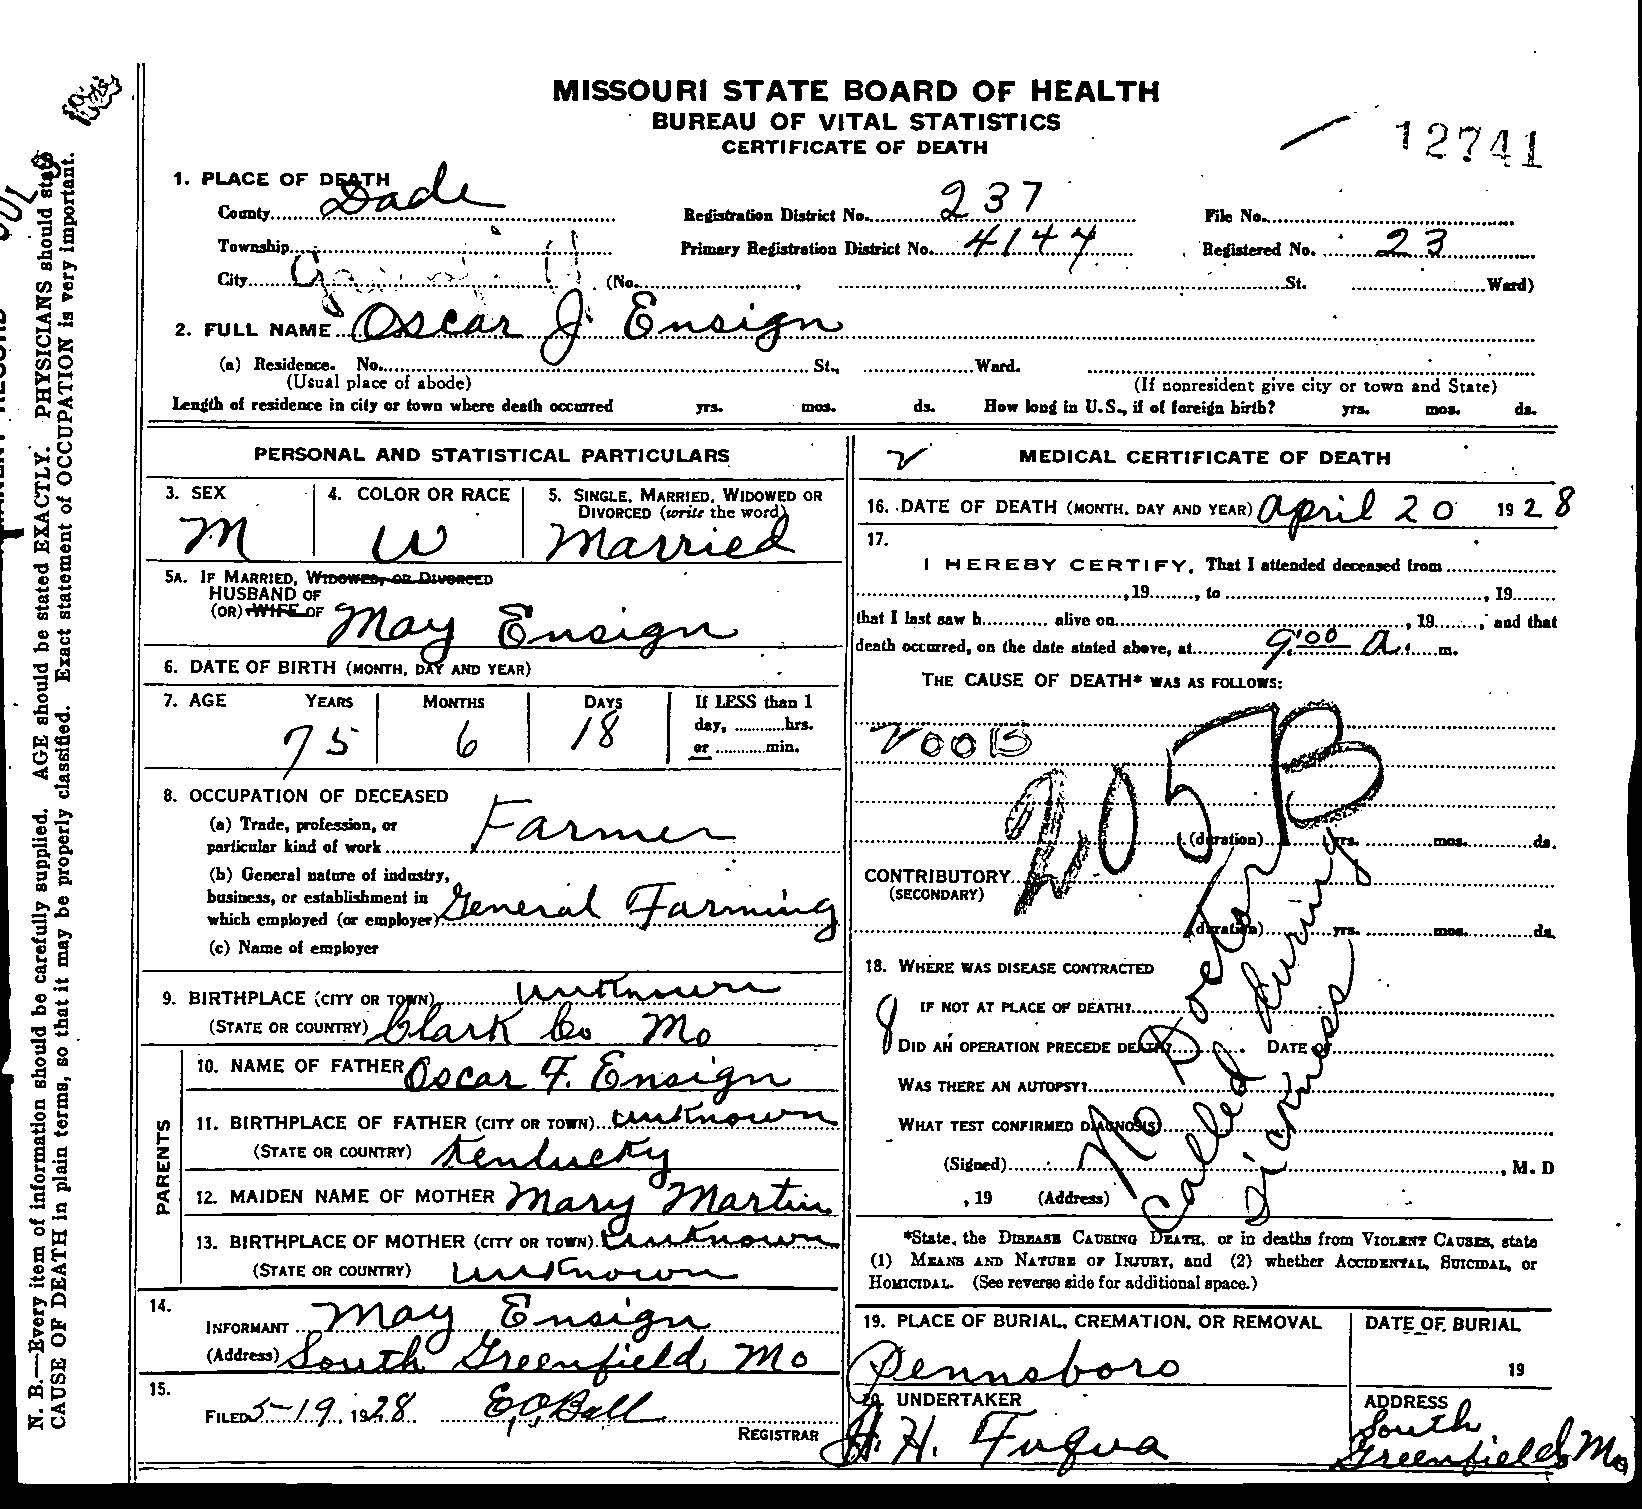 MISSOURI STATE BOARD OF HEALTH
BUREAU OF VITAL STATISTICS
CERTIFICATE OF DEATH
12741
1. PLACE OF DEATH
County Dade Registration District No. 237 File No.
Township Primary Registration District No. 4147 Registered No. 23
City (No. , St. Ward)
2. FULL NAME Oscar J. Ensign
(a) Residence. No. St., Ward.
(Usual place of abode) (If nonresident give city or town and State)
Length of residence in city or town where death occurred yrs. mos. ds. How long in U.S., if of foreign birth? yrs. mos. ds.
PERSONAL AND STATISTICAL PARTICULARS
3. SEX 4. COLOR OR RACE 5. SINGLE, MARRIED, WIDOWED OR
DIVORCED (write the word)
M W Married
5A. IF MARRIED, WIDOWED, OR DIVORCED
HUSBAND OF
(OR) WIFE OF May Ensign
6. DATE OF BIRTH (MONTH, DAY AND YEAR)
7. AGE YEARS MONTHS DAYS If LESS than 1
day, hrs.
or min.
75 6 18
8. OCCUPATION OF DECEASED
(a) Trade, profession, or
particular kind of work Farmer
(b) General nature of industry,
business, or establishment in
which employed (or employer) General Farming
(c) Name of employer
9. BIRTHPLACE (CITY OR TOWN) unknown
(STATE OR COUNTRY) Clark Co Mo
PARENTS
10. NAME OF FATHER Oscar F. Ensign
11. BIRTHPLACE OF FATHER (CITY OR TOWN) unknown
(STATE OR COUNTRY) Kentucky
12. MAIDEN NAME OF MOTHER Mary Martin
13. BIRTHPLACE OF MOTHER (CITY OR TOWN) unknown
(STATE OR COUNTRY) unknown
14.
INFORMANT May Ensign
(Address) South Greenfield Mo
15.
FILED 5-19, 1928 E.O. Ball
REGISTRAR
MEDICAL CERTIFICATE OF DEATH
16. DATE OF DEATH (MONTH, DAY AND YEAR) April 20 1928
17.
I HEREBY CERTIFY, That I attended deceased from
, 19 , to , 19
that I last saw h alive on , 19 , and that
death occurred, on the date stated above, at 9:00 A. m.
THE CAUSE OF DEATH* WAS AS FOLLOWS:
200B
205B
(duration) yrs. mos. ds.
CONTRIBUTORY
(SECONDARY)
(duration) yrs. mos. ds.
No Doctor
Called during
Sickness
18. WHERE WAS DISEASE CONTRACTED
IF NOT AT PLACE OF DEATH?
8
DID AN OPERATION PRECEDE DEATH? DATE OF
WAS THERE AN AUTOPSY?
WHAT TEST CONFIRMED DIAGNOSIS?
(Signed) , M. D
, 19 (Address)
*State, the DISEASE CAUSING DEATH, or in deaths from VIOLENT CAUSES, state
(1) MEANS AND NATURE OF INJURY, and (2) whether ACCIDENTAL, SUICIDAL, or
HOMICIDAL. (See reverse side for additional space.)
19. PLACE OF BURIAL, CREMATION, OR REMOVAL DATE OF BURIAL
Pennsboro 19
20. UNDERTAKER ADDRESS
H. H. Fuqua South Greenfield, Mo
N. B.—Every item of information should be carefully supplied. AGE should be stated EXACTLY. PHYSICIANS should state
CAUSE OF DEATH in plain terms, so that it may be properly classified. Exact statement of OCCUPATION is very important.